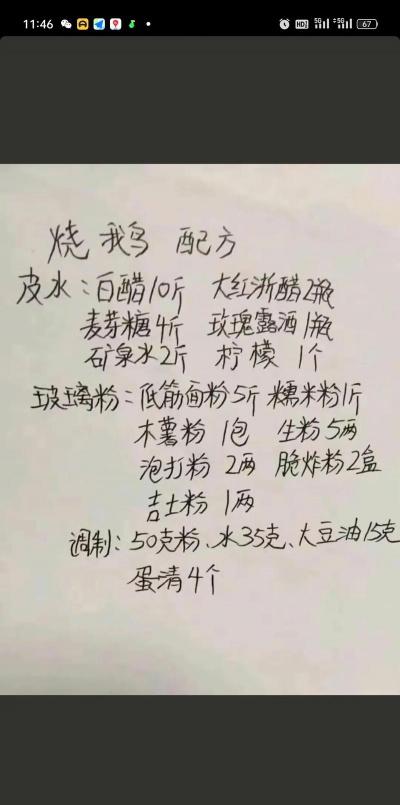 11:46
HD 5G 5G 67
烧鹅 配方
皮水：白醋10斤 大红浙醋2瓶
麦芽糖4斤 玫瑰露酒1瓶
矿泉水2斤 柠檬 1个
玻璃粉：低筋面粉5斤 糯米粉1斤
木薯粉 1包 生粉5两
泡打粉 2两 脆炸粉2盒
吉士粉 1两
调制：50克粉、水35克、大豆油15克
蛋清4个